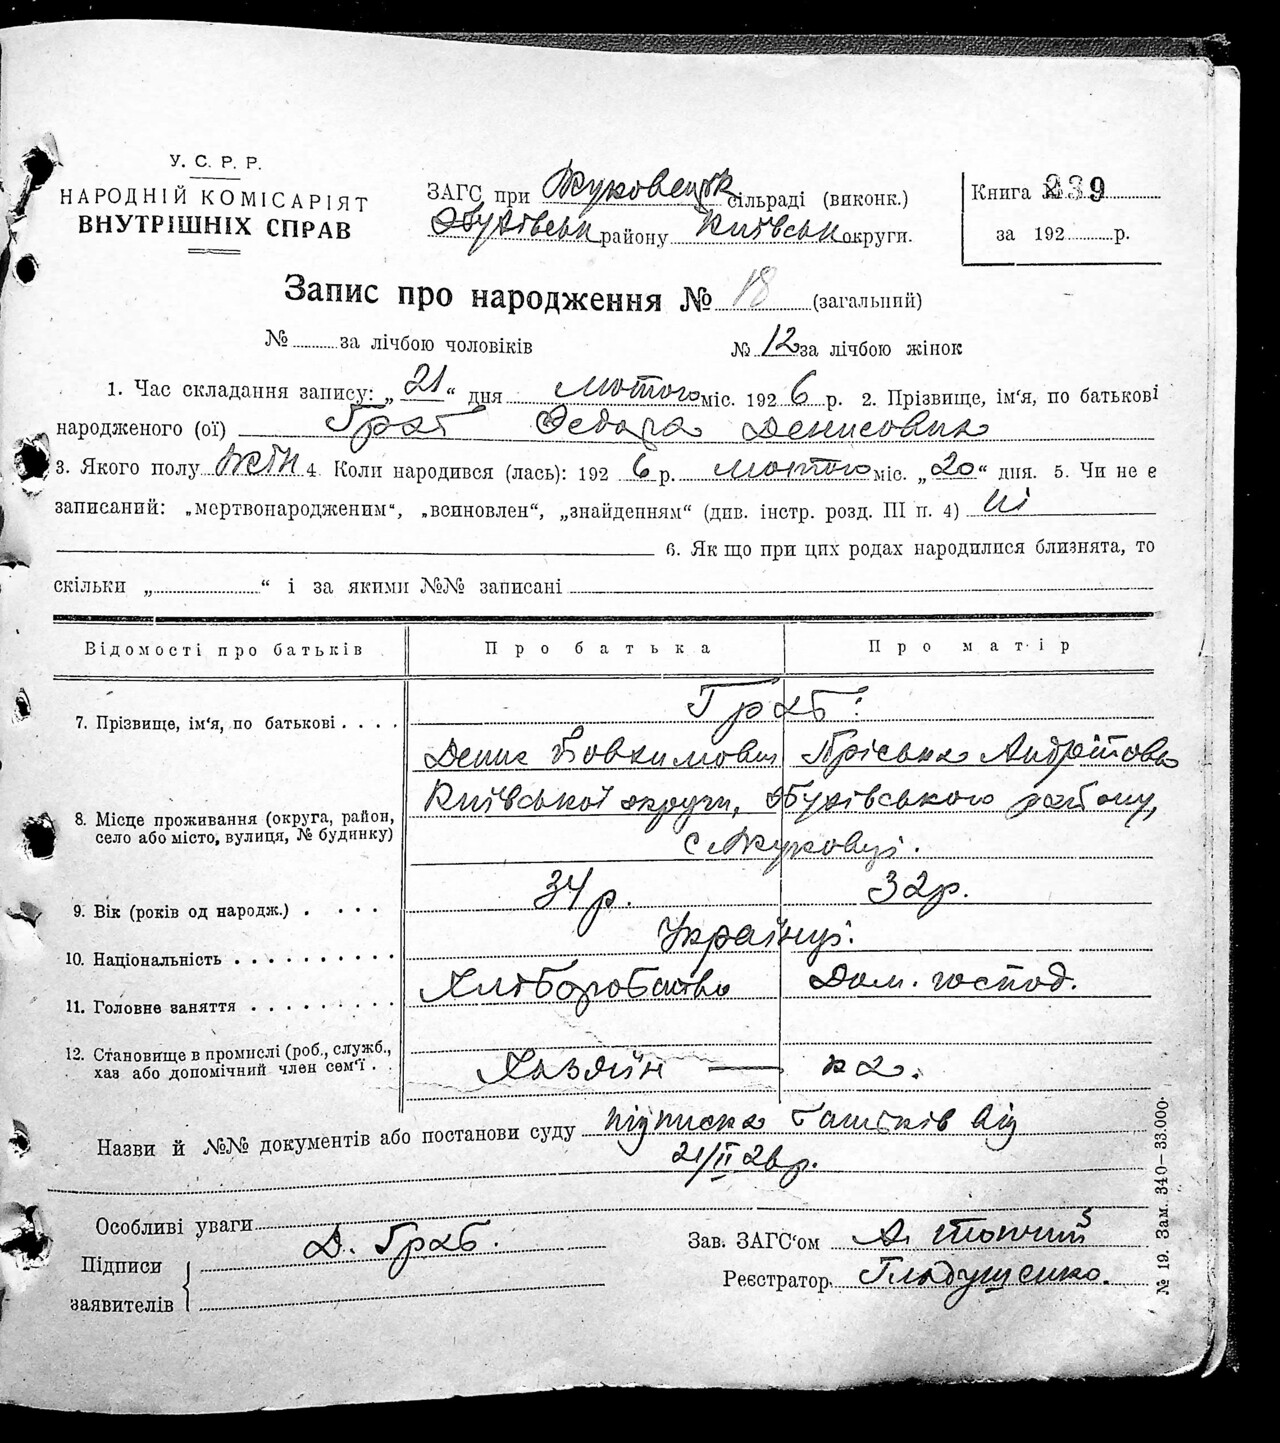 У. С. Р. Р.
НАРОДНІЙ КОМІСАРІЯТ
ВНУТРІШНІХ СПРАВ
ЗАГС при Жуковецьк сільраді (виконк.)
Обухівськ району Київськ округи.
Книга № 239
за 192 р.
Запис про народження № 18 (загальний)
№ за лічбою чоловіків
№ 12 за лічбою жінок
1. Час складання запису: „21“ дня лютого міс. 1926 р. 2. Прізвище, ім'я, по батькові
народженого (ої) Граб Федора Денисовна
3. Якого полу жін 4. Коли народився (лась): 1926 р. лютого міс. „20“ дня. 5. Чи не є
записаний: „мертвонародженим“, „всиновлен“, „знайденням“ (див. інстр. розд. III п. 4) ні
6. Як що при цих родах народилися близнята, то
скільки „ “ і за якими №№ записані
Відомості про батьків
Про батька
Про матір
7. Прізвище, ім'я, по батькові
Граб:
Денис Овкимович
Пріська Андріївна
8. Місце проживання (округа, район,
село або місто, вулиця, № будинку)
Київської округи, Обухівського району,
с. Жуковці.
9. Вік (років од народж.)
34 р.
32 р.
10. Національність
Українці.
11. Головне заняття
Хліборобство
Дом. господ.
12. Становище в промислі (роб., служб.,
хаз або допомічний член сем'ї
Хазяїн — ка.
Назви й №№ документів або постанови суду підписка батьків від
21/II 26 р.
Особливі уваги
Підписи
заявителів
Д. Граб.
Зав. ЗАГС'ом А.
Реєстратор Гладущенко.
№ 19. Зам. 340—33.000.